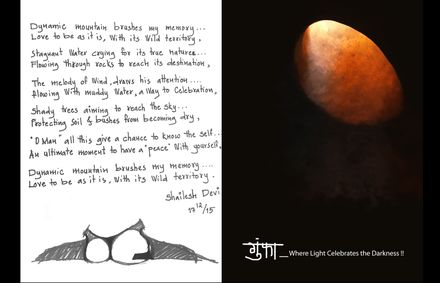 Dynamic mountain brushes my memory...
Love to be as it is, With its Wild territory,
Stagnant Water crying for its true nature...
Flowing Through rocks to reach its destination,
The melody of Wind, draws his attention....
Flowing With muddy Water, a Way to Celebration,
Shady trees aiming to reach the sky...
Protecting Soil & bushes from becoming dry,
"O Man" all this give a chance to know the self...
An ultimate moment to have a "peace" With yourself,
Dynamic mountain brushes my memory....
Love to be as it is, With its Wild territory.
Shailesh Devi
17 12/15
गुंफा_Where Light Celebrates the Darkness !!